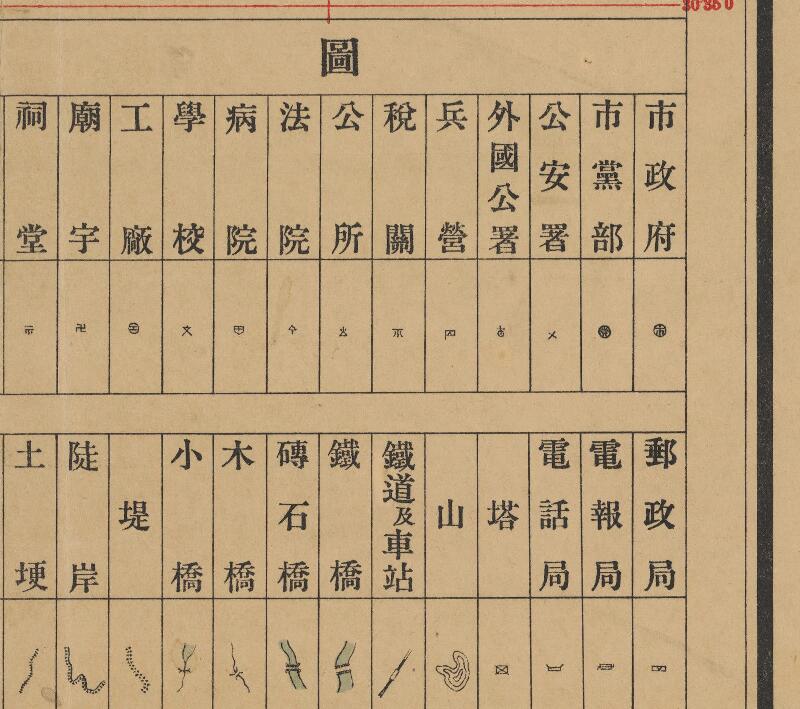 30'35"0
圖
市政府
市黨部
公安署
外國公署
兵營
稅關
公所
法院
病院
學校
工廠
廟宇
祠堂
郵政局
電報局
電話局
塔
山
鐵道及車站
鐵橋
磚石橋
木橋
小橋
堤
陡岸
土埂